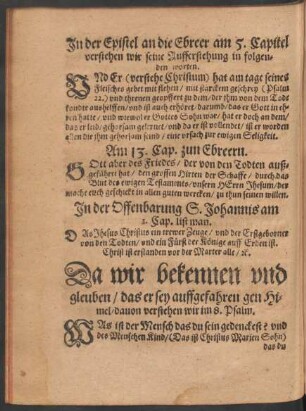 In der Epistel an die Ebreer am 5. Capitel
verstehen wir seine Aufferstehung in folgen-
den worten.
VNd Er (verstehe Christum) hat am tage seines
Fleisches gebet mit flehen / mit starckem geschrey (Psalm
22.) vnd threnen geopffert zu dem / der jhm von dem Tode
kondte aushelffen / vnd ist auch erhöret / darumb / das er Gott in eh-
ren hatte / vnd wiewol er Gottes Sohn war / hat er doch an dem /
das er leid / gehorsam gelernet / vnd da er ist vollendet / ist er worden
allen die jhm gehorsam sind / eine vrsach zur ewigen Seligkeit.
Am 13. Cap. zum Ebreern.
GOtt aber des Friedes / der von den Todten auß-
geführt hat / den grossen Hirten der Schaffe / durch das
Blut des ewigen Testaments / vnsern HErrn Jhesum / der
mache euch geschickt in allen guten wercken / zu thun seinen willen.
In der Offenbarung S. Johannis am
1. Cap. list man.
DAs Jhesus Christus ein trewer Zeuge / vnd der Erstgeborner
von den Todten / vnd ein Fürst der Könige auff Erden ist.
Christ ist erstanden vor der Marter alle / ꝛc.
Da wir bekennen vnd
gleuben / das er sey auffgefahren gen Hi-
mel / dauon verstehen wir im 8. Psalm.
WAs ist der Mensch das du sein gedenckest? vnd
des Menschen Kind / (Das ist Christus Marien Sohn)
das du